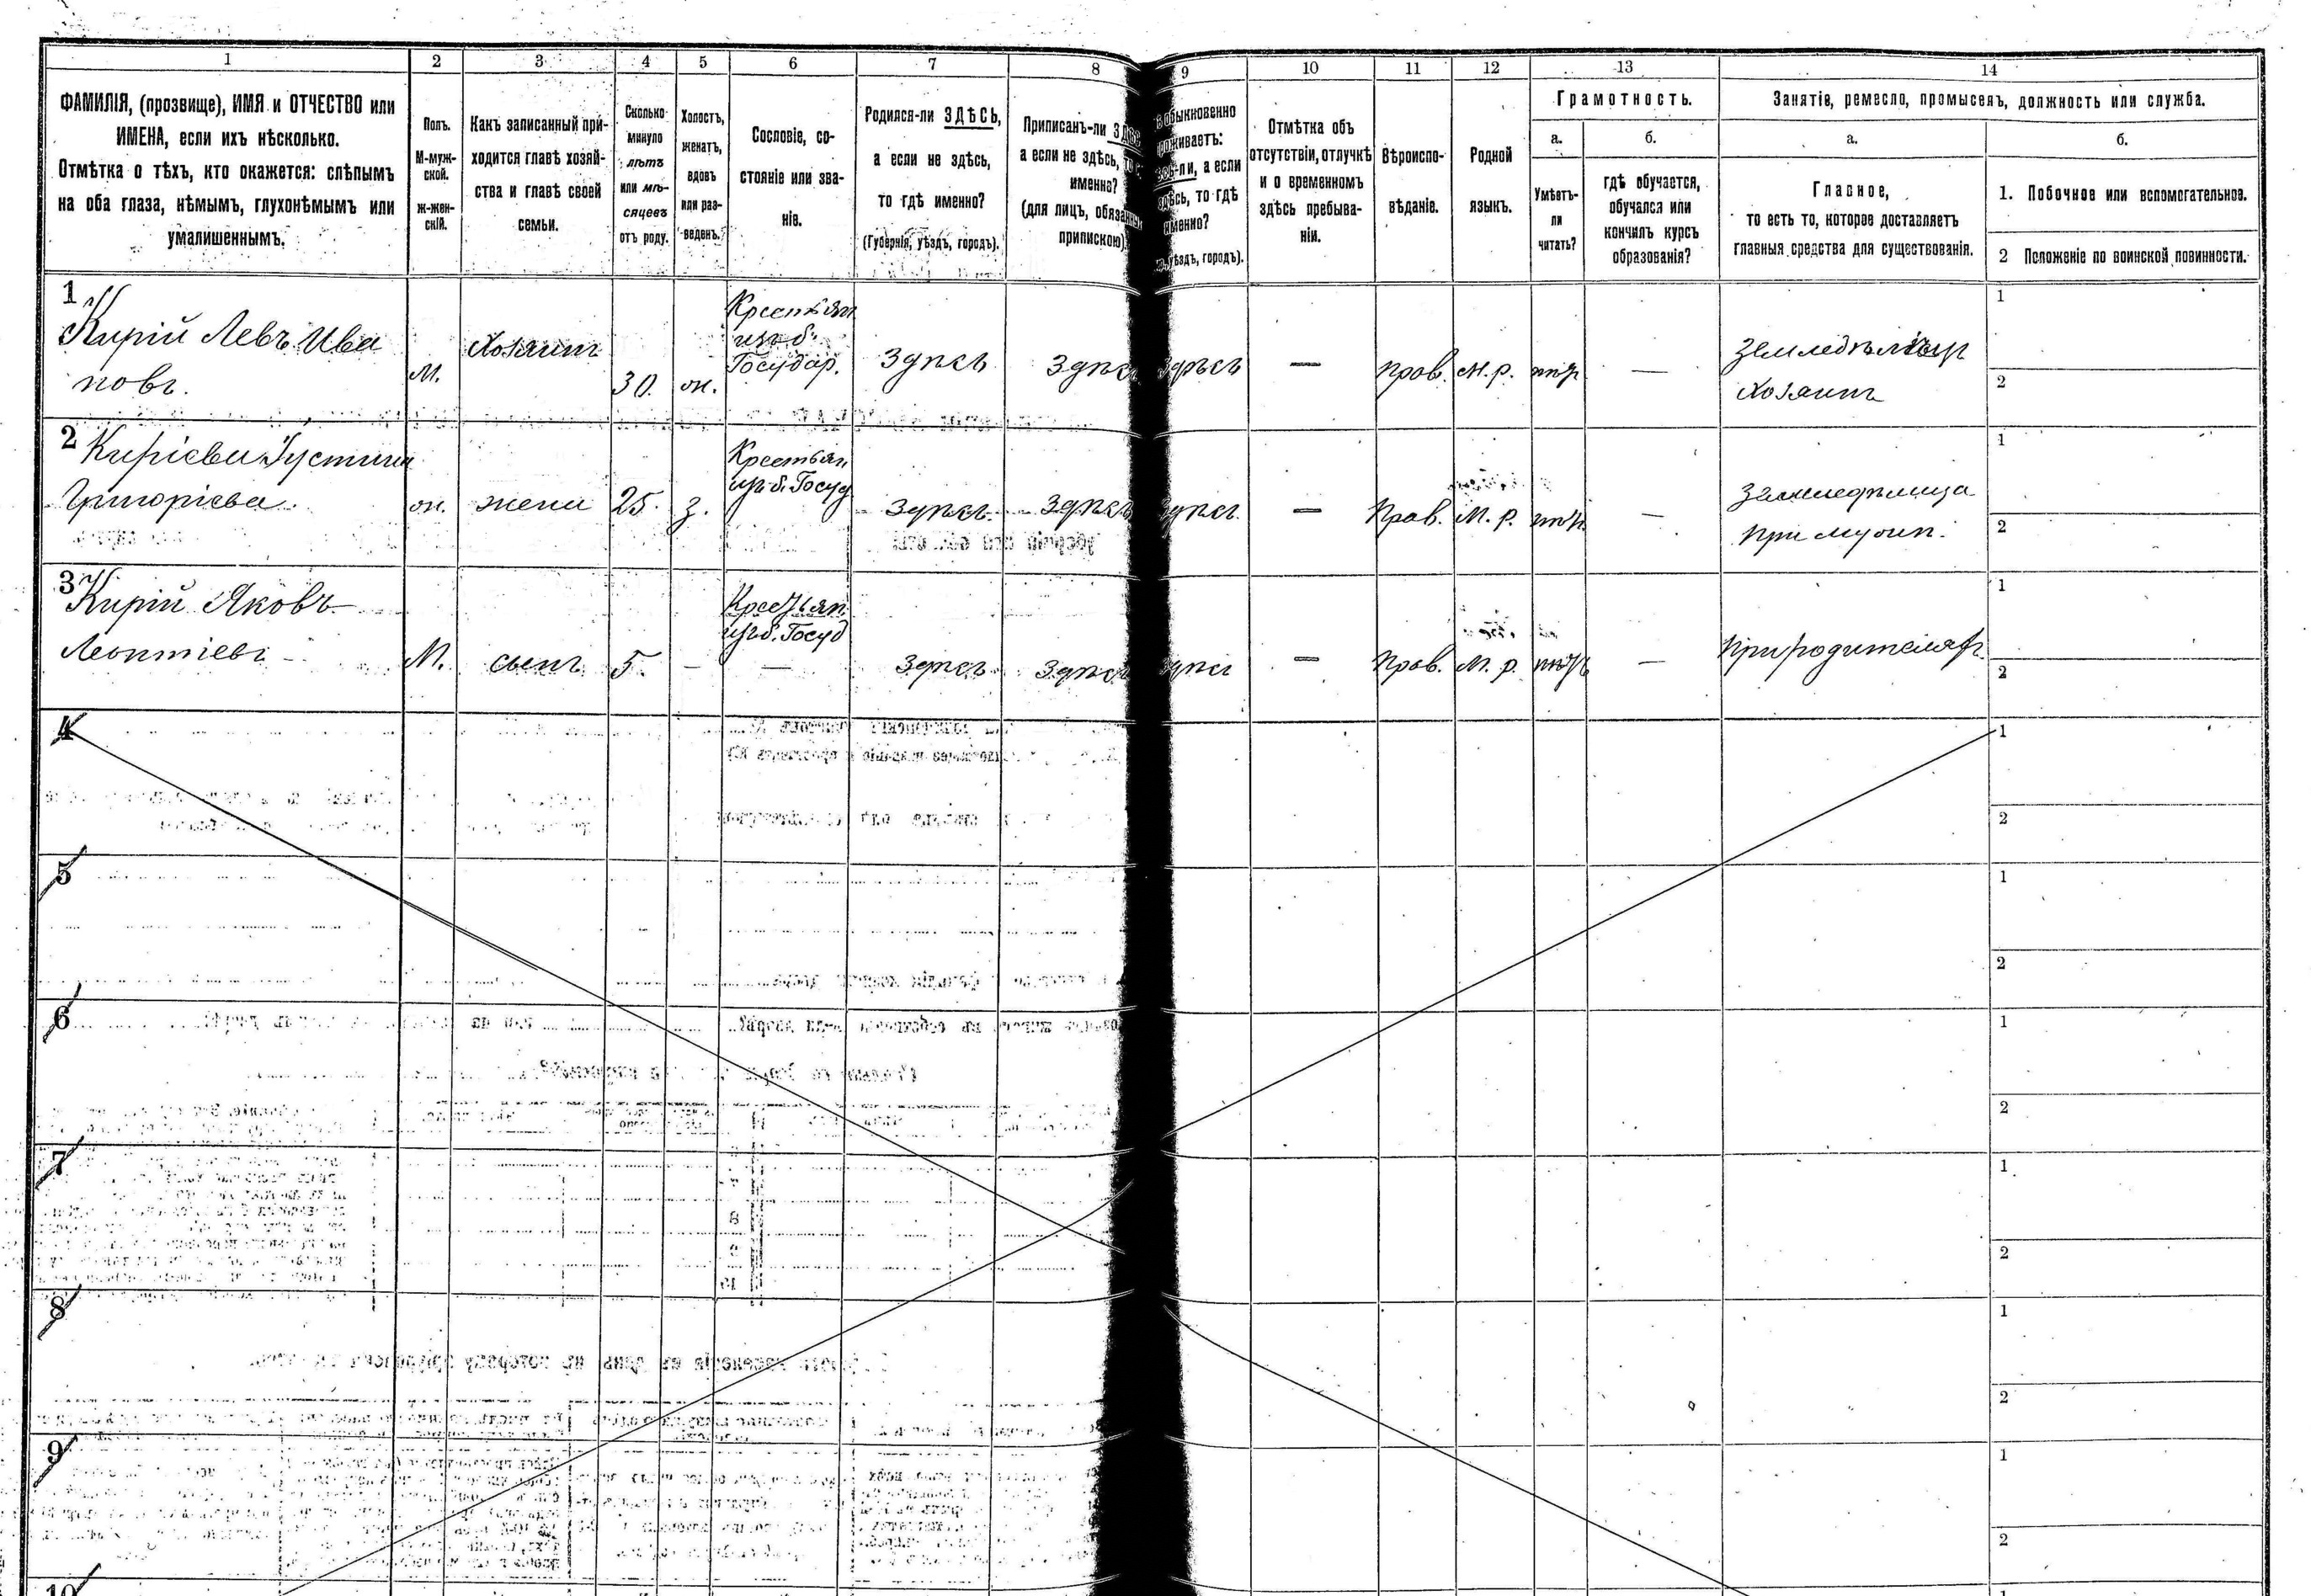 1 2 3 4 5 6 7 8 9 10 11 12 13 14
ФАМИЛІЯ, (прозвище), ИМЯ и ОТЧЕСТВО или
ИМЕНА, если ихъ нѣсколько.
Отмѣтка о тѣхъ, кто окажется: слѣпымъ
на оба глаза, нѣмымъ, глухонѣмымъ или
умалишеннымъ.
Полъ.
М-муж-
ской.
ж-жен-
скій.
Какъ записанный при-
ходится главѣ хозяй-
ства и главѣ своей
семьи.
Сколько
минуло
лѣтъ
или мѣ-
сяцевъ
отъ роду.
Холостъ,
женатъ,
вдовъ
или раз-
веденъ.
Сословіе, со-
стояніе или зва-
ніе.
Родился-ли ЗДѢСЬ,
а если не здѣсь,
то гдѣ именно?
(Губернія, уѣздъ, городъ).
Приписанъ-ли
а если не здѣсь,
именно?
(для лицъ,
припискою)
обыкновенно
а если
то гдѣ
уѣздъ, городъ).
Отмѣтка объ
отсутствіи, отлучкѣ
и о временномъ
здѣсь пребыва-
ніи.
Вѣроиспо-
вѣданіе.
Родной
языкъ.
Грамотность.
а.
Умѣетъ-
ли
читать?
б.
гдѣ обучается,
обучался или
кончилъ курсъ
образованія?
Занятіе, ремесло, промыселъ, должность или служба.
а.
Главное,
то есть то, которое доставляетъ
главныя средства для существованія.
б.
1. Побочное или вспомогательное.
2 Положеніе по воинской повинности.
1
Кирій Левъ Ива
новъ.
М.
Хозяинъ
30.
ж.
Крестьян
изъ б.
Государ.
Здѣсь
Здѣсь
Здѣсь
—
прав.
М. р.
нѣтъ
—
Земледѣлецъ
Хозяинъ
1
2
2
Киріева Устинья
Григоріева
ж.
жена
25.
з.
Крестьян.
изъ б. Госуд
Здѣсь.
Здѣсь
Здѣсь.
—
Прав.
М. р.
нѣтъ
—
Земледѣлица
при мужѣ.
1
2
3
Кирій Яковъ
Леонтіевъ
М.
сынъ
5.
—
Крестьян.
изъ б. Госуд
—
Здѣсь
Здѣсь
Здѣсь
—
Прав.
М. р.
нѣтъ
—
При родителяхъ
1
2
4
1
2
5
1
2
6
1
2
7
1
2
8
1
2
9
1
2
10
1